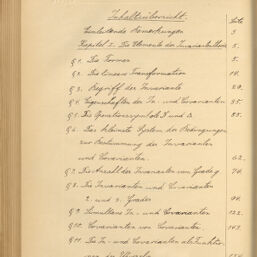 Inhaltsübersicht.
Seite
Einleitende Bemerkungen 3
Kapitel I. Die Elemente der Invariantentheorie 5.
§ 1. Die Formen 5.
§ 2. Die lineare Transformation 14.
§ 3. Begriff der Invariante 20.
§ 4. Eigenschaften der In- und Covarianten 25.
§ 5. Die Operationssymbole D und Δ 35.
§ 6. Das kleinste System der Bedingungen
zur Bestimmung der Invarianten
und Covarianten. 62.
§ 7. Die Anzahl der Invarianten vom Grade g 74.
§ 8. Die Invarianten und Covarianten
2. und 3. Grades 94.
§ 9. Simultane In- und Covarianten 122.
§ 10. Covarianten von Covarianten 143.
§ 11. Die In- und Covarianten als Funktion